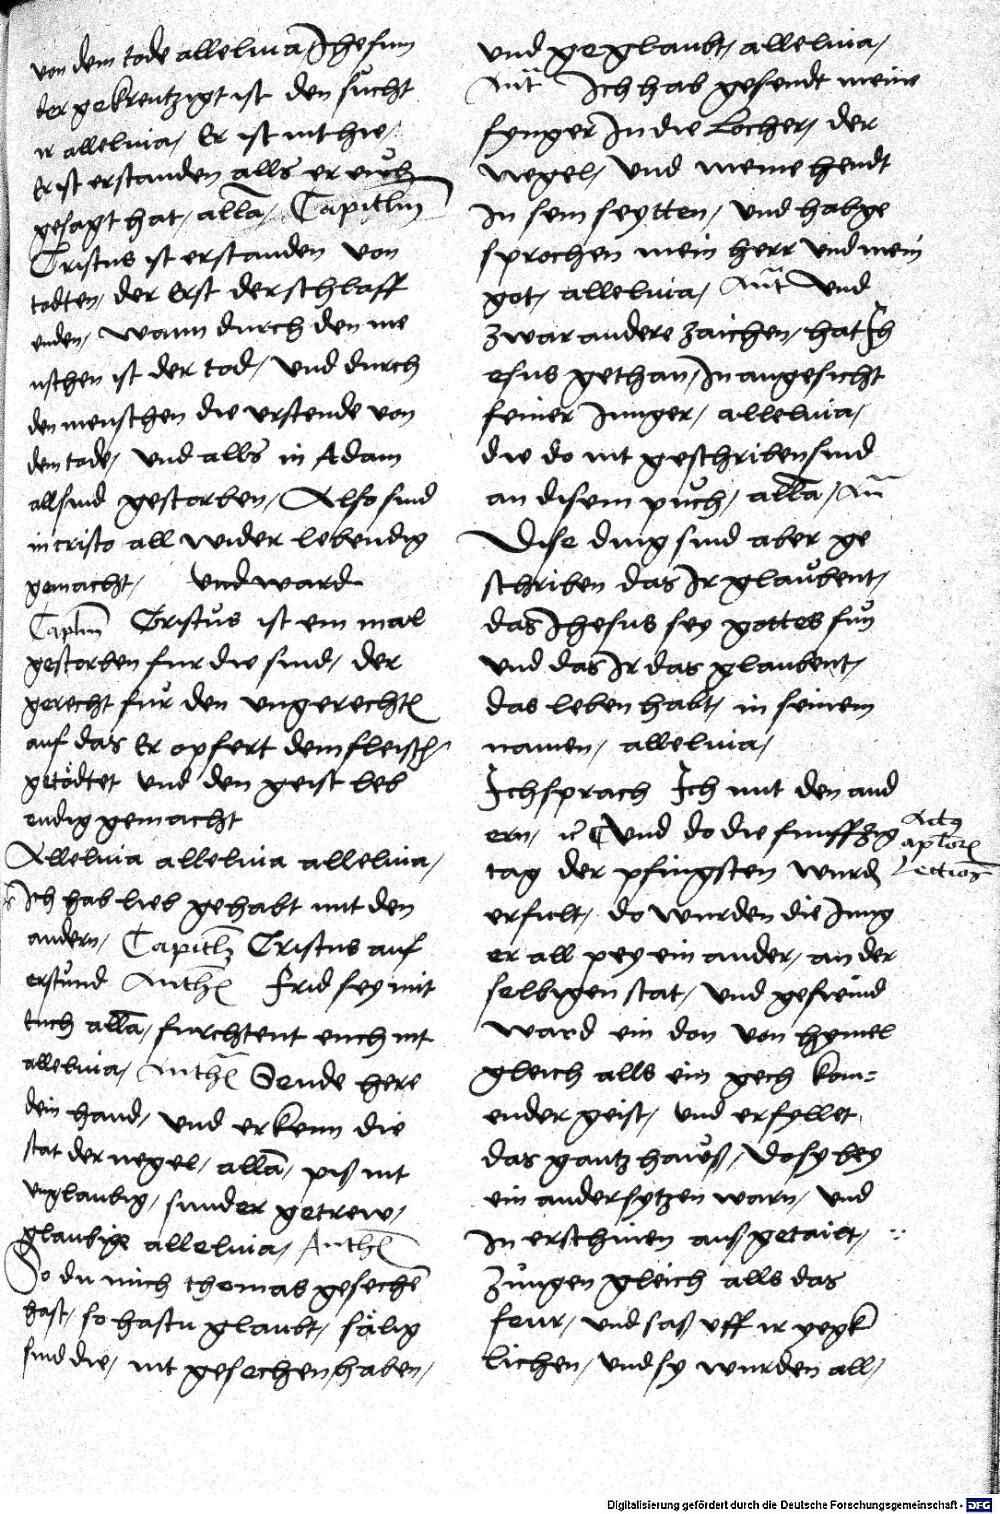 von dem tode alleluia / Jhesum
der gekreutzigt ist den sücht
ir alleluia / Er ist nit hie /
Er ist erstanden alls er euch
gesagt hat / alla / Capitlm
Cristus ist erstanden von
todten / der Erst der schlaff
enden / wann durch den me
nschen ist der tod / und durch
den menschen die urstende von
dem tode / und alls in Adam
all sind gestorben / Also sind
in cristo all wider lebendig
gemacht / und ward
Captlm Cristus ist ein mal
gestorben fur die sind / der
gerecht für den ungerechtn
auf das Er opfert dem fleisch /
getödtet und den geist leb
endig gemacht
Alleluia alleluia alleluia /
Ich hab lieb gehabt mit den
andern / Capitlm Cristus auf
erstund Anth Frid sey mit
euch alla / furchtent euch nit
alleluia / Anth Sende here
dein hand / und erkenn die
stat der negel / alla / piß nit
unglaubig / sunder getrew /
glaubige alleluia / Anth
So du mich thomas gesechen
hast / so hastu glaubt / sälig
sind die / nit gesechen haben /
und geglaubt / alleluia /
Ant Ich hab gesendt meine
fynger In die Locher / der
negel / und meine hendt
In sein seytten / und hab ge
sprochen mein herr und mein
got / alleluia / Ant Und
zwar andere zaichen / hat Jh
esus gethan / In angesicht
seiner Junger / alleluia /
die do nit geschriben sind
an disem puch / alla / An
Dise ding sind aber ge
schriben das Ir glaubent /
das Jhesus sey gottes sun
und das Ir das glaubent /
das leben habt / in seinem
namen / alleluia /
Ich sprach Ich mit den and
ern / Und do die funffzig
tag der pfingsten wurd
erfult / do wurden die Jung
er all pey ein ander / an der
selbigen stat / und geswind
ward ein don von hymel
gleich alls ein gech kom=
ender geist / und erfyllet
das gantz hauß / Do sy bey
ein ander sytzen warn / und
In erschinen auß getailt /
Zungen gleich alls das
feur / und saß uff ir yegk
lichen / und sy wurden all /
Actq
aptor
Lectio
Digitalisierung gefördert durch die Deutsche Forschungsgemeinschaft - DFG